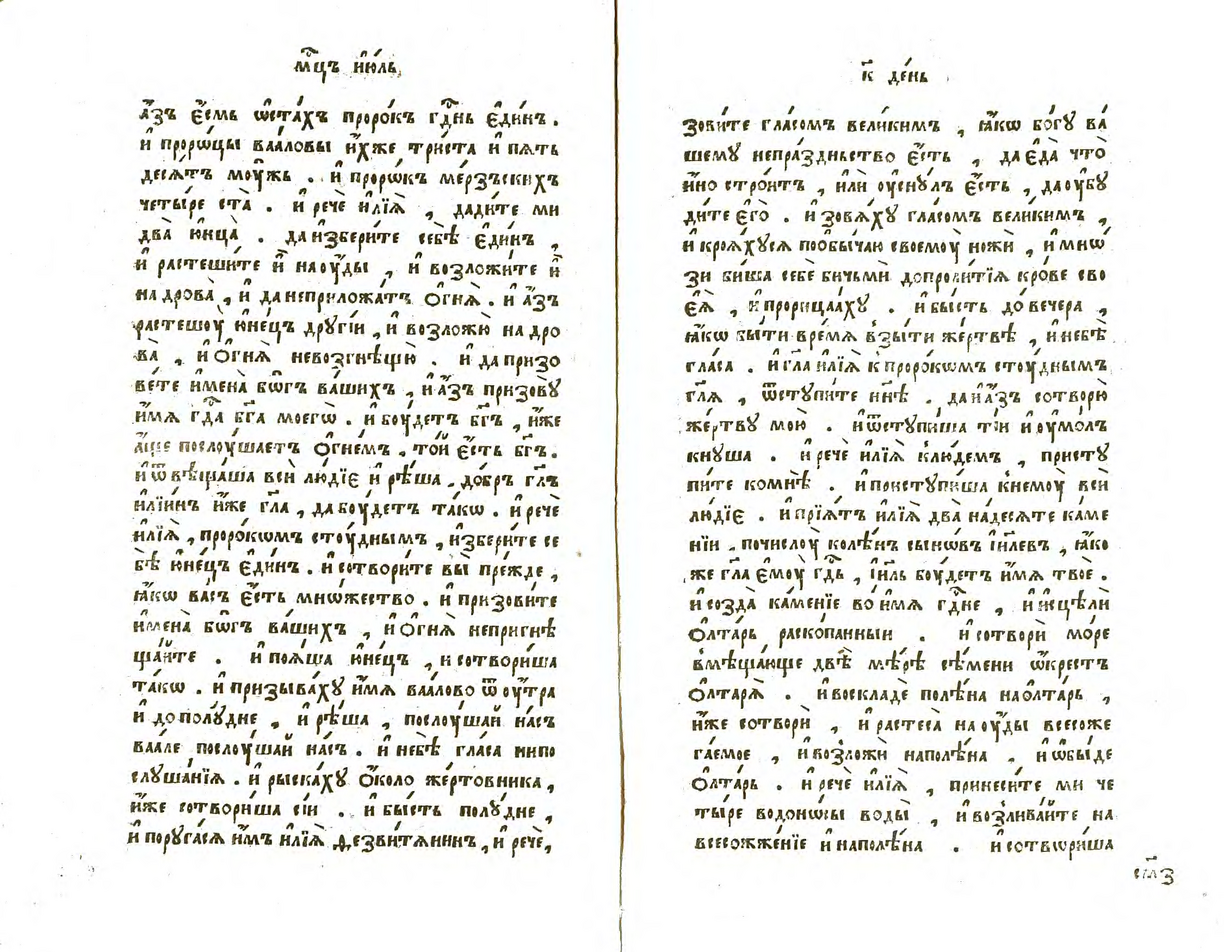 мⷭ҇цъ і҆ю́ль
а҆́зъ є҆́смь ѡ҆ста́хъ проро́къ гдⷭ҇нь є҆ди́нъ .
и҆ проро́цы ваа́ловы и҆́хже три́ста и҆ пѧ́ть
десѧ́тъ моу́жь . и҆ проро́къ ме́рзъскихъ
четы́ре ста̀ . и҆ речѐ и҆лїѧ̀ , дади́те ми
два̀ ю҆нца̀ . да и҆збери́те себѣ̀ є҆ди́нъ ,
и҆ растеши́те и҆̀ на оу҆́ды , и҆ возложи́те и҆̀
на дрова̀ , и҆ да неприложа́тъ ѻ҆гнѧ̀ . и҆ а҆́зъ
растешоу̀ ю҆не́цъ дрꙋгі́и , и҆ возложю̀ на дро
ва̀ , и҆ ѻ҆гнѧ̀ невозгнѣщю̀ . и҆ да призо
ве́те и҆мена̀ бѡ́гъ ва́шихъ , и҆ а҆́зъ призовꙋ̀
и҆́мѧ гдⷭ҇а бг҃а моегѡ̀ . и҆ боу́детъ бг҃ъ , и҆́же
а҆́ще послоу́шаетъ ѻ҆гне́мъ . то́й є҆́сть бг҃ъ .
и҆ ѿвѣща́ша всѝ лю́дїе и҆ рѣ́ша . до́бръ гл҃ъ
и҆лїи́нъ и҆́же гл҃а , да боу́детъ та́кѡ . и҆ речѐ
и҆лїѧ̀ , проро́кѡмъ стоу́днымъ , и҆збери́те се
бѣ̀ ю҆не́цъ є҆ди́нъ . и҆ сотвори́те вы̀ пре́жде ,
ꙗ҆́кѡ ва́съ є҆́сть мно́жество . и҆ призови́те
и҆мена̀ бѡ́гъ ва́шихъ , и҆ ѻ҆гнѧ̀ непригнѣ
ща́йте . и҆ поѧ́ша ю҆не́цъ , и҆ сотвори́ша
та́кѡ . и҆ призыва́хꙋ и҆́мѧ ваа́лово ѿ оу҆́тра
и҆ до полꙋ́дне , и҆ рѣ́ша , послоу́шай на́съ
ваа́ле послоу́шай на́съ . и҆ небѣ̀ гла́са нипо
слꙋша́нїѧ . и҆ рыска́хꙋ ѻ҆́коло же́ртовника ,
и҆́же сотвори́ша сі́и . и҆ бы́сть полꙋ́дне ,
и҆ порꙋга́сѧ и҆́мъ и҆лїѧ̀ дезвитѧ́нинъ , и҆ речѐ ,
к҃ де́нь
зови́те гла́сомъ вели́кимъ , ꙗ҆́кѡ бо́гꙋ ва́
шемꙋ непра́здньство є҆́сть , да є҆да̀ что̀
и҆́но стро́итъ , и҆лѝ оу҆снꙋ́лъ є҆́сть , да оу҆бꙋ
ди́те є҆го̀ . и҆ зовѧ́хꙋ гла́сомъ вели́кимъ ,
и҆ кроѧ́хꙋсѧ по ѻ҆бы́чаю своемоу̀ ножи̑ , и҆ мнѡ́
зи би́ша себѐ бичьмѝ до проли́тїѧ кро́ве сво
є҆ѧ̀ , и҆ прорица́ахꙋ . и҆ бы́сть до ве́чера ,
ꙗ҆́кѡ бы́ти вре́мѧ взы́ти же́ртвѣ , и҆ небѣ̀
гла́са . и҆ гл҃а и҆лїѧ̀ к проро́кѡмъ стоу́днымъ
гл҃ѧ , ѿстꙋпи́те нн҃ѣ . да и҆ а҆́зъ сотворю̀
же́ртвꙋ мою̀ . и҆ ѿстꙋпи́ша ті́и и҆ оу҆мо́лъ
кнꙋша . и҆ речѐ и҆лїѧ̀ к лю́демъ , пристꙋ
пи́те ко мнѣ̀ . и҆ пристꙋпи́ша к немоу̀ всѝ
лю́дїе . и҆ прїѧ́тъ и҆лїѧ̀ два̀ на́десѧте ка́ме
нїи . по числоу̀ колѣ́нъ сынѡ́въ і҆и҃левъ , ꙗ҆́ко
же гл҃а є҆моу̀ гдⷭ҇ь , і҆и҃ль боу́детъ и҆́мѧ твоѐ .
и҆ созда̀ ка́менїе во и҆́мѧ гдⷭ҇не , и҆ и҆сцѣлѝ
ѻ҆лта́рь раско́панныи . и҆ сотворѝ мо́ре
вмѣща́юще двѣ̀ мѣ́рѣ сѣ́мени ѡ҆́крестъ
ѻ҆лтарѧ̀ . и҆ воскладѐ полѣ́на на ѻ҆лта́рь ,
и҆́же сотворѝ , и҆ растеса̀ на оу҆́ды всесоже
га́емое , и҆ возложѝ на полѣ́на . и҆ ѡ҆бы́де
ѻ҆лта́рь . и҆ речѐ и҆лїѧ̀ , принеси́те ми че
ты́ре водоно́сы воды̀ , и҆ возлива́йте на
всесожже́нїе и҆ на полѣ́на . и҆ сотвори́ша